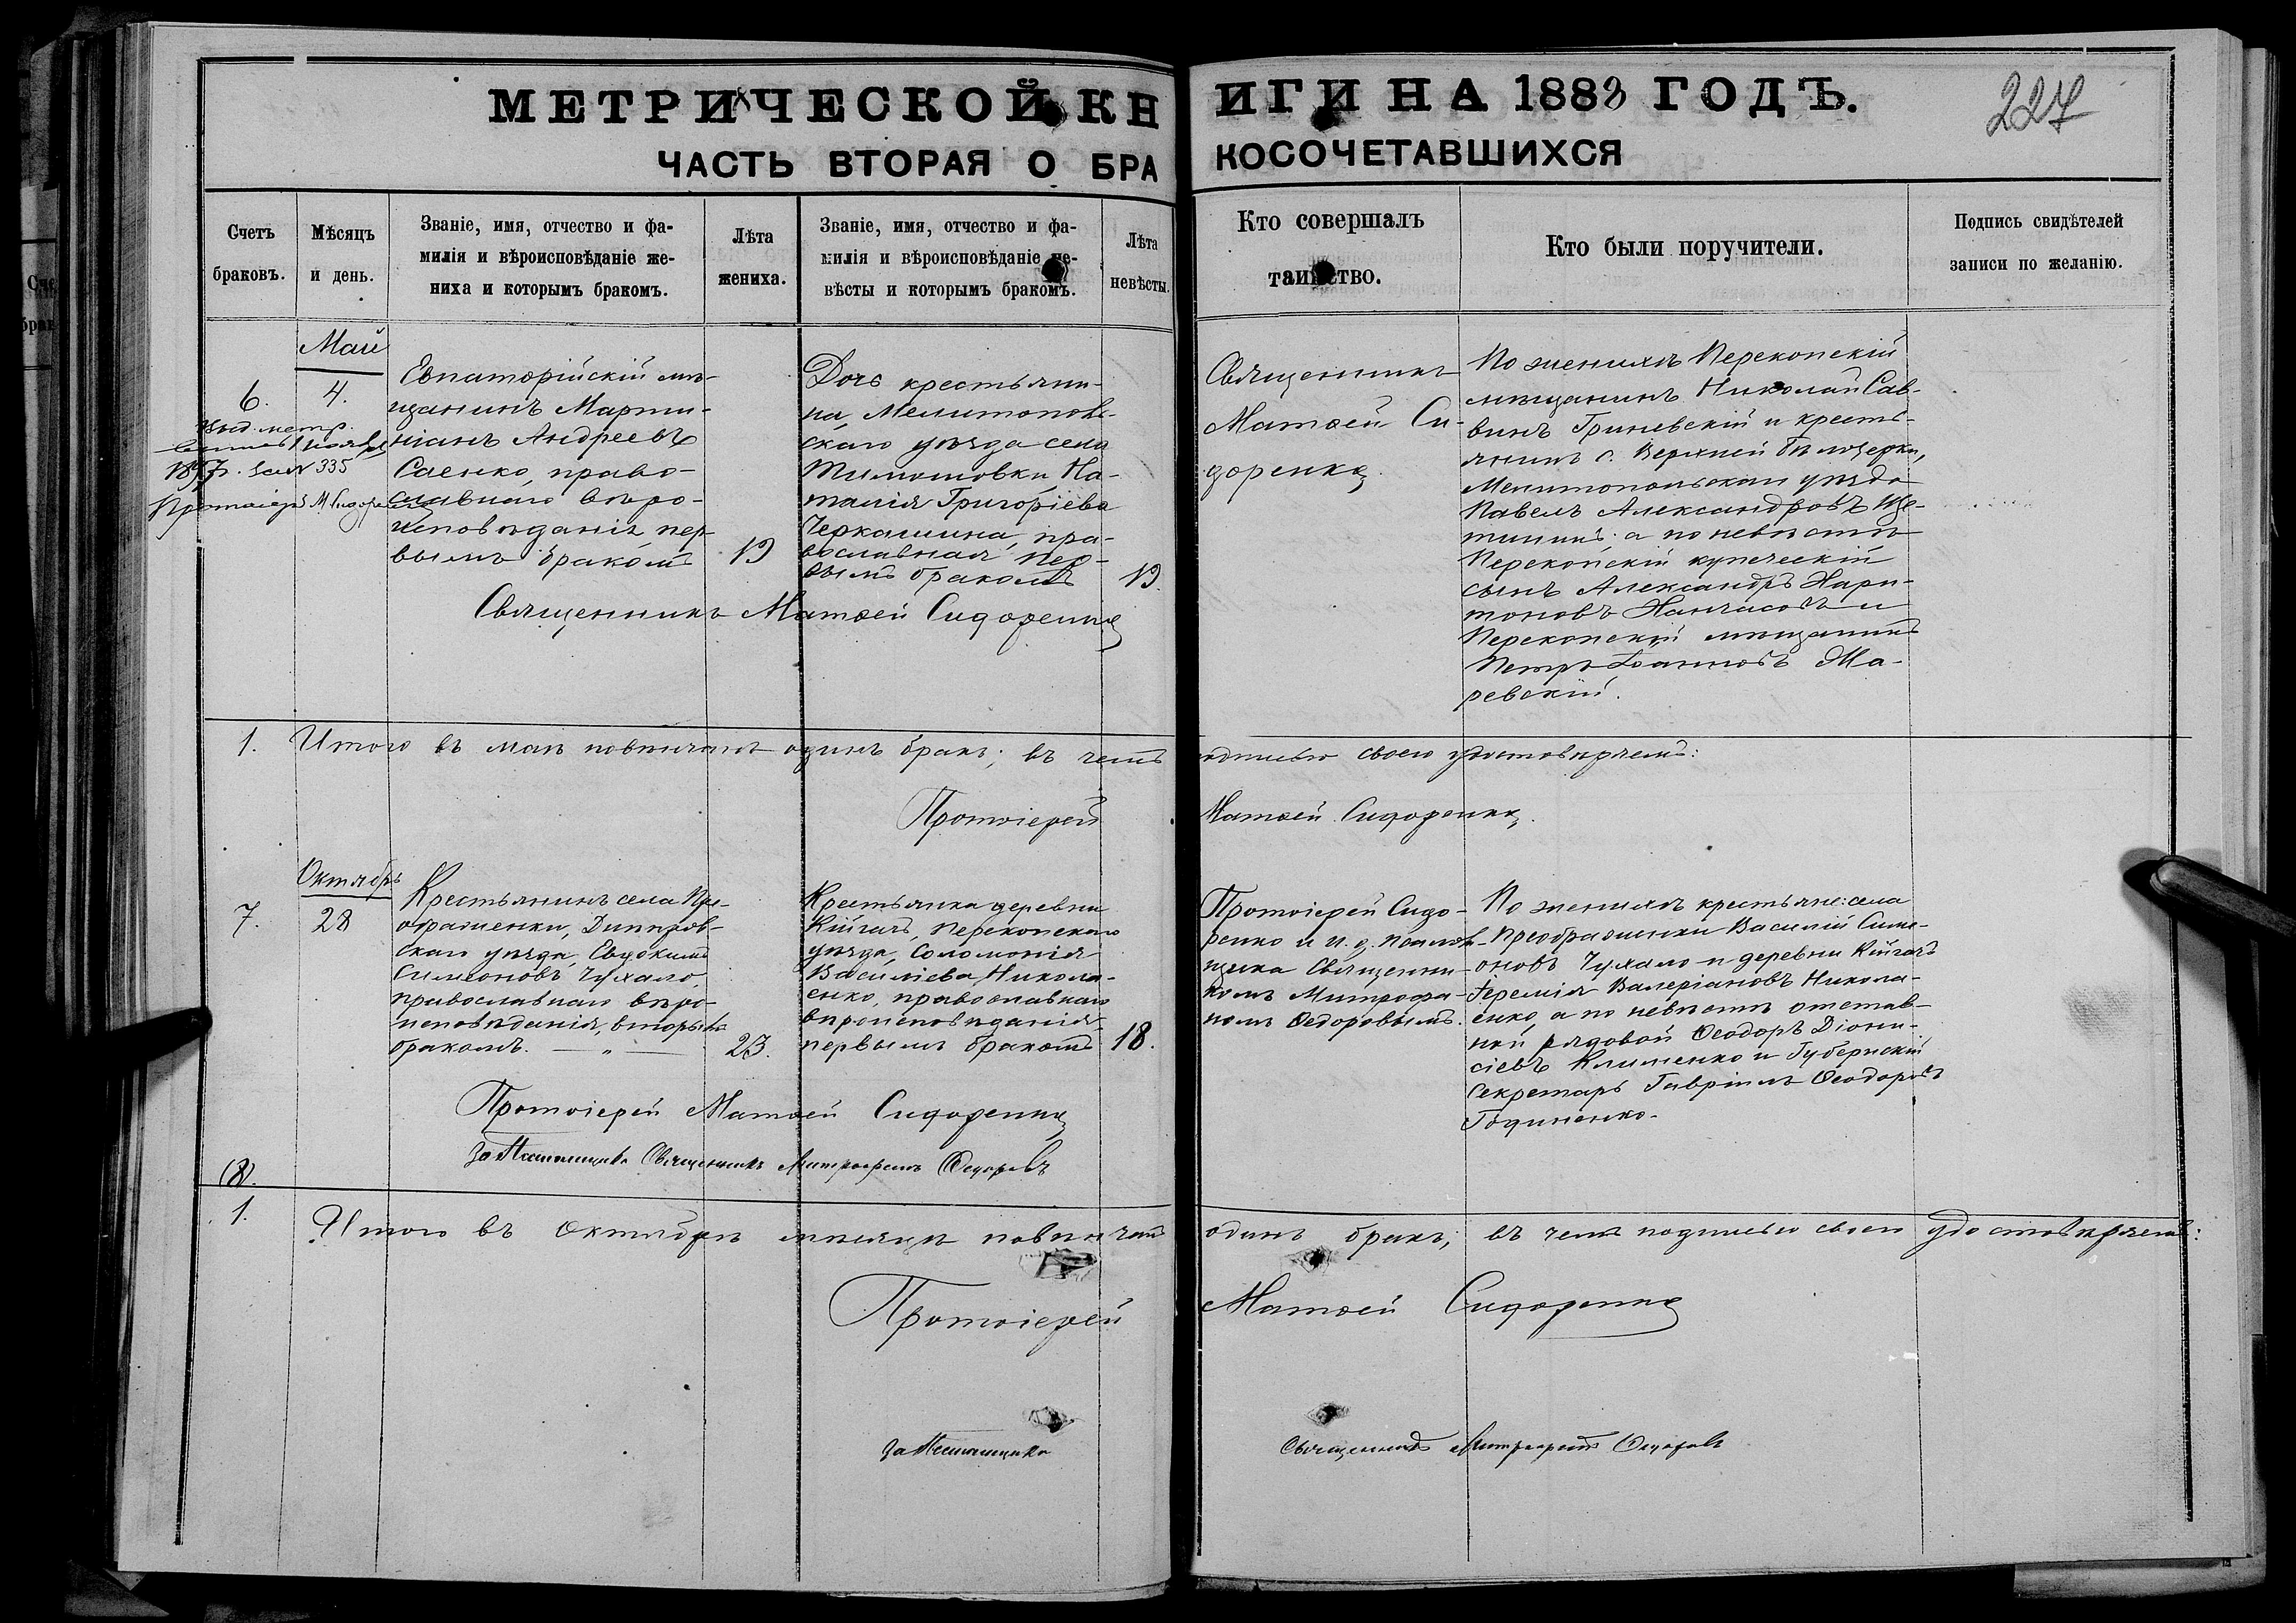 МЕТРИЧЕСКОЙ КНИГИ НА 1883 ГОДЪ.
227
ЧАСТЬ ВТОРАЯ О БРАКОСОЧЕТАВШИХСЯ
Счетъ
браковъ.
Мѣсяцъ
и день.
Званіе, имя, отчество и фа-
милія и вѣроисповѣданіе же-
ниха и которымъ бракомъ.
Лѣта
жениха.
Званіе, имя, отчество и фа-
милія и вѣроисповѣданіе не-
вѣсты и которымъ бракомъ.
Лѣта
невѣсты.
Кто совершалъ
таинство.
Кто были поручители.
Подпись свидѣтелей
записи по желанію.
6.
Выд. метр.
335
Протоіерей М. Сидоренко
Май
4.
Евпаторійскій мѣ-
щанинъ Марти-
ніанъ Андреевъ
Саенко, право-
славнаго вѣро-
исповѣданія, пер-
вымъ бракомъ
19
Дочь крестьяни-
на, Мелитополь-
скаго уѣзда села
Тимошовки, На-
талія Григоріева
Черкашина, пра-
вославная пер-
вымъ бракомъ
19.
Священникъ
Матѳей Си-
доренко.
По женихѣ Перекопскій
мѣщанинъ Николай Сав-
винъ Гриневскій и кресть-
янинъ с. Верхней Бѣлозерки,
Мелитопольскаго уѣзда
Павелъ Александровъ Ще-
тининъ; а по невѣстѣ
Перекопскій купеческій
сынъ Александръ Хари-
тоновъ и
Перекопскій мѣщанинъ
Петръ Іоанновъ Ма-
ревскій.
Священникъ Матѳей Сидоренко
1. Итого въ маѣ повѣнчанъ одинъ бракъ; въ чемъ подписью своею удостовѣряемъ:
Протоіерей Матѳей Сидоренко.
7.
Октябрь
28
Крестьянинъ села Пре-
ображенки, Днѣпров-
скаго уѣзда, Евдокимъ
Симеоновъ Чухало,
православнаго вѣро-
исповѣданія, вторымъ
бракомъ. — „ —
23.
Крестьянка деревни
Кійгачъ, Перекопскаго
уѣзда, Соломонія
Василіева Никола-
енко, православнаго
вѣроисповѣданія
первымъ бракомъ
18.
Протоіерей Сидо-
ренко и и. д. псалом-
щика Священни-
комъ Митрофа-
номъ Ѳедоровымъ.
По женихѣ крестьяне: села
Преображенки Василій Симе-
оновъ Чухало и деревни Кійгачъ
Іеремія Валеріановъ Никола-
енко, а по невѣстѣ отстав-
ной рядовой Ѳеодоръ Діони-
сіевъ Клименко и Губернскій
Секретарь Гавріилъ Ѳеодоровъ
Годиненко.
Протоіерей Матѳей Сидоренко
За Псаломщика Священникъ Митрофанъ Ѳедоровъ
1. Итого въ Октябрѣ мѣсяцѣ повѣнчанъ одинъ бракъ; въ чемъ подписью своею удостовѣряемъ:
Протоіерей Матѳей Сидоренко
За Псаломщика Священникъ Митрофанъ Ѳедоровъ